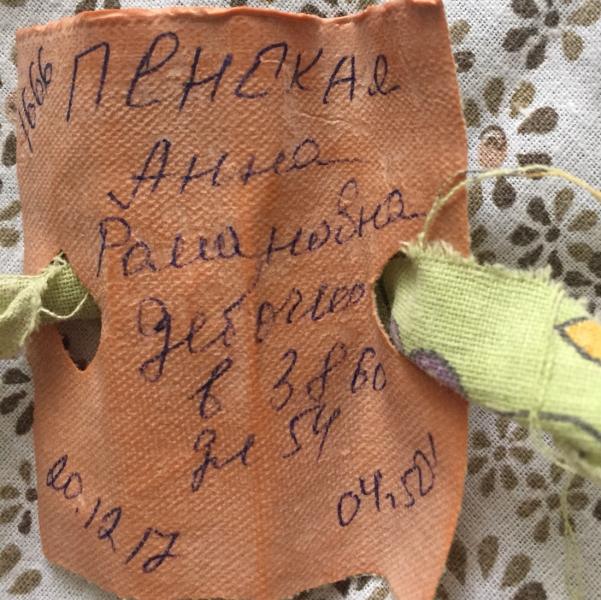 1666
ПЕНСКАЯ
Анна
Романовна
девочка
в 3860
дл 54
20.12.17
04.50